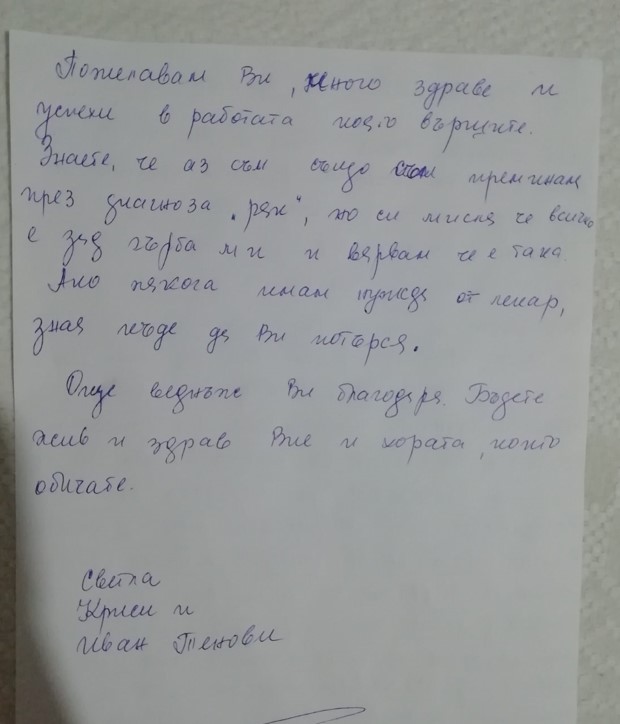 Пожелавам Ви, много здраве и
успехи в работата която вършите.
Знаете, че аз съм също съм преминал
през диагноза "рак", но си мисля че всичко
е зад гърба ми и вярвам че е така.
Ако някога имам нужда от лекар,
зная къде да Ви потърся.
Още веднъж Ви благодаря. Бъдете
жив и здрав Вие и хората, които
обичате.
Светла
Криси и
Иван Тенови